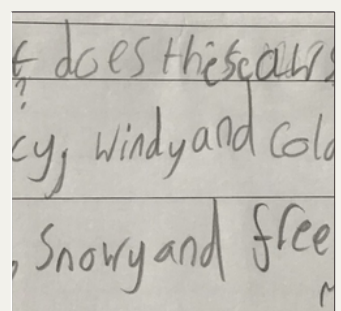 t does this
?
cy, windy and cold
, Snowy and free